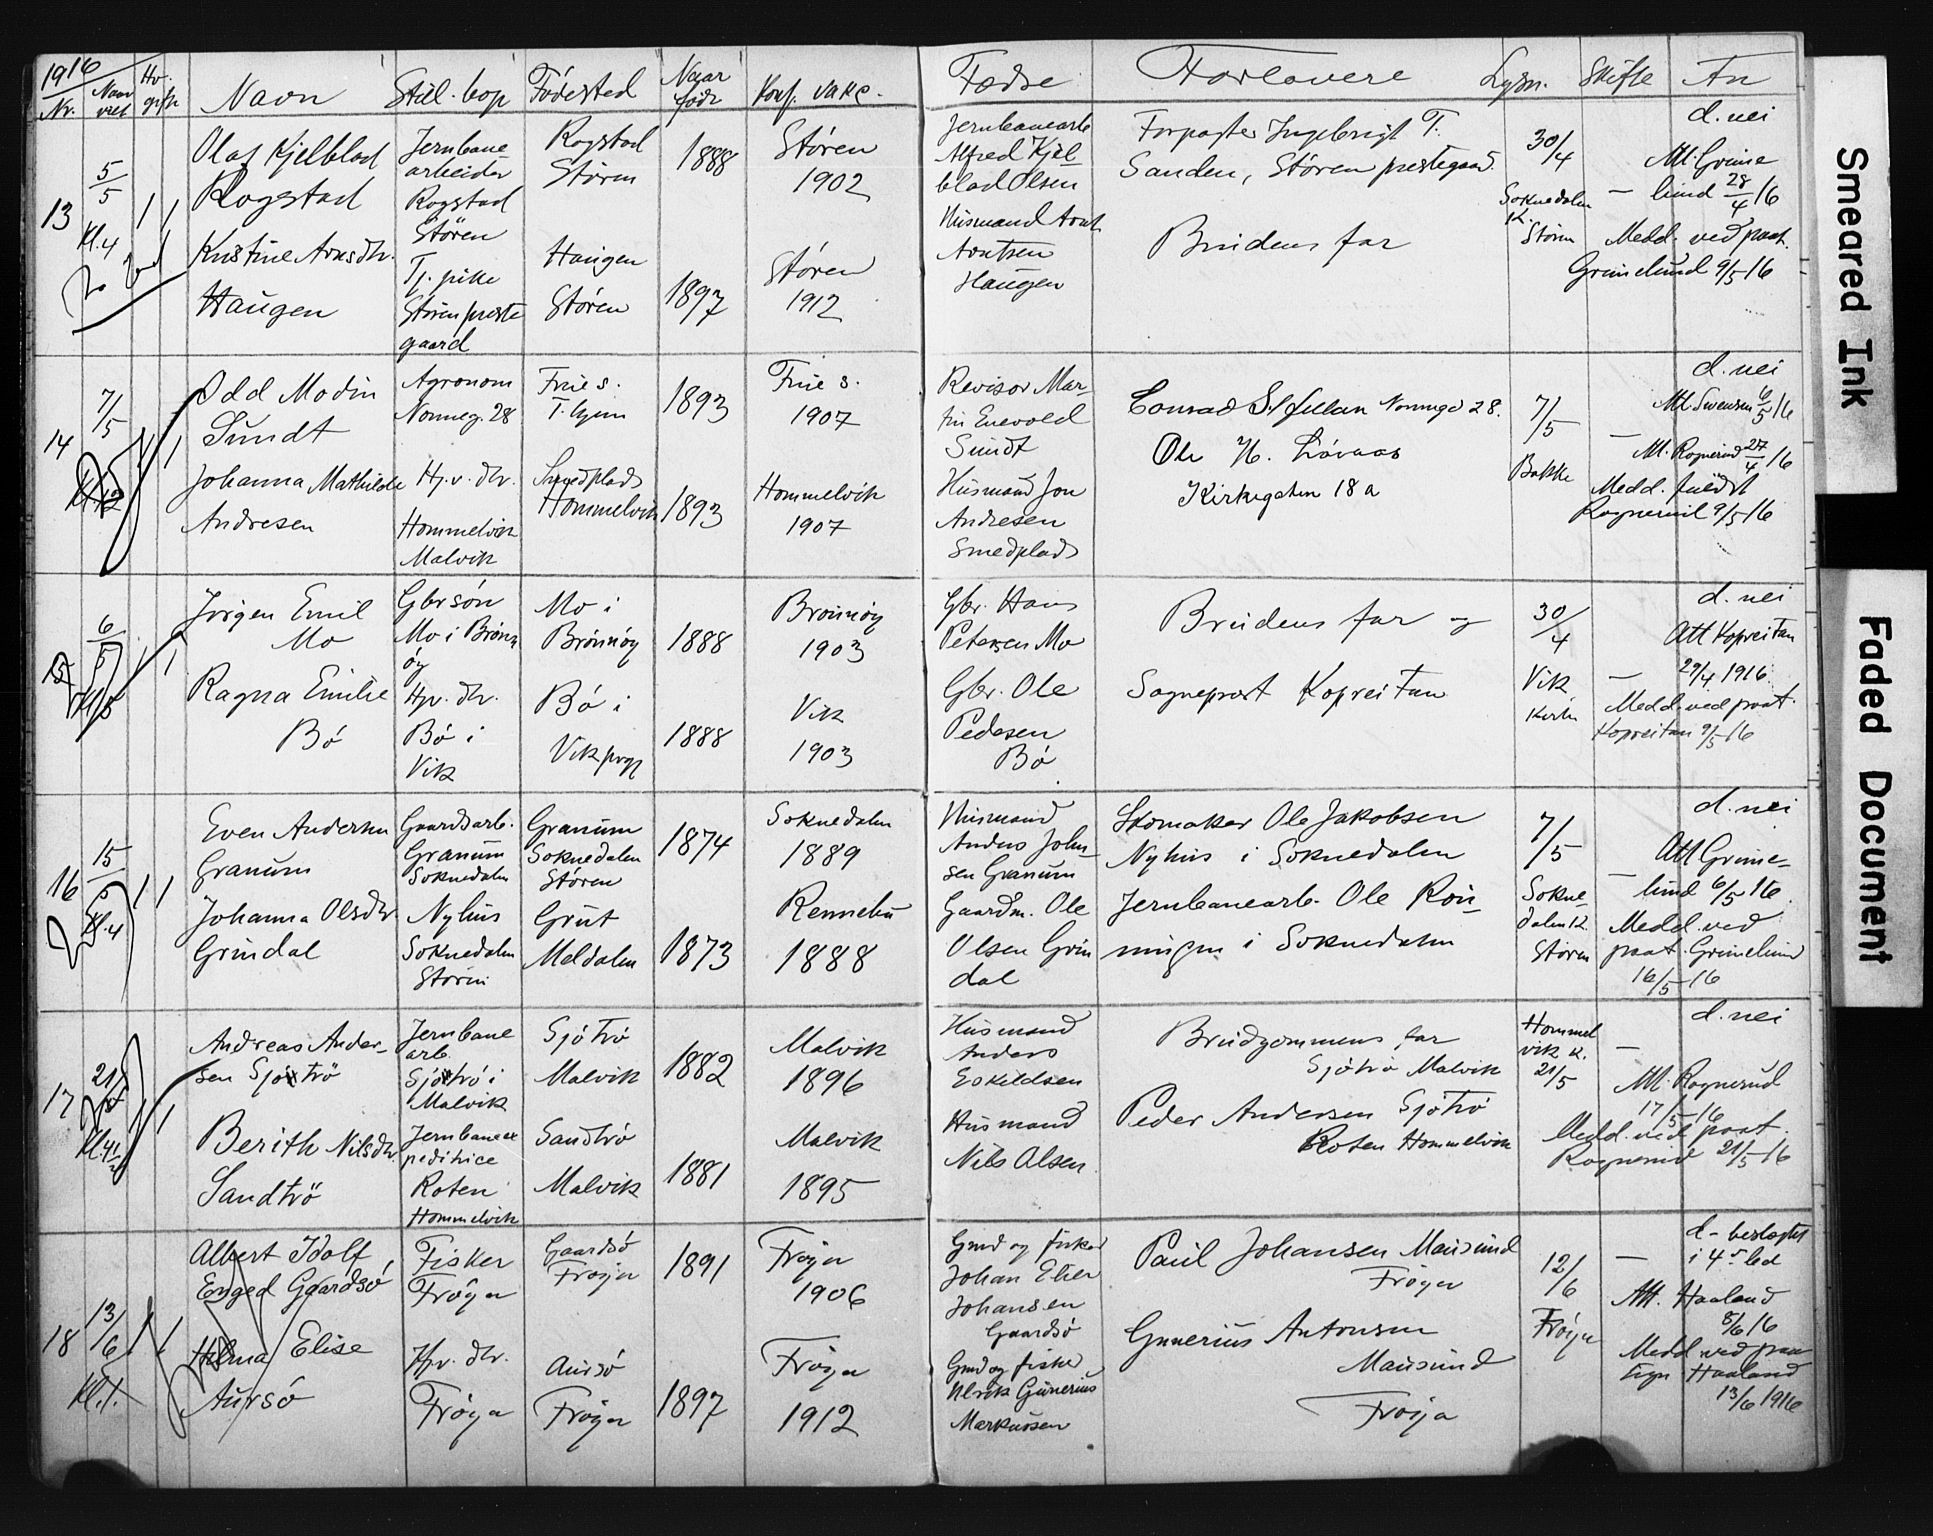 1916
Nr. Naar viet Hv. gift Navn Still. bop Fødested Naar født Konf. vakc. Fædre Forlovere Lysn. Skifte An
13
5/5
Kl. 4
Olaf Kjelblad
Rogstad
Jernbane
arbeider
Rogstad
Støren
Rogstad
Støren
1888
Støren
1902
Jernbanearb
Alfred Kjel-
blad Olsen
Forpagter Ingebrigt T.
Sanden, Støren prestegaard.
30/4
Soknedalen
K.
Støren
d. nei
Att. Grime
— lund 28/4 16
Medd. ved prat.
Grimelund 9/5 16
Kristine Arnsdtr.
Haugen
Tj. pike
Støren preste
gaard
Haugen
Støren
1897
Støren
1912
Husmand Arnt
Arntsen
Haugen
Brudens far
14
7/5
Kl. 12
Odd Modin
Sundt
Agronom
Nonneg. 28
Frue s.
T.hjem
1893
Frue s.
1907
Revisor Mar-
tin Enevold
Sundt
Conrad Nonnegd 28.
Ole Løvaas
Kirkegaten 18 a
7/5
Bakke
d. nei
Att. Svensen 6/5 16
— Att. Rognerud 27/4 16
Medd.
9/5 16
Johanna Mathilde
Andresen
Hj. v. dtr.
Hommelvik
Malvik
Smedplads
Hommelvik
1893
Hommelvik
1907
Husmand Jon
Andresen
Smedplads
15
6/5
Kl. 5
Jørgen Emil
Mo
Gbr søn
Mo i Brønn
øy
Mo i
Brønnøy
1888
Brønnøy
1903
Gbr. Hans
Petersen Mo
Brudens far og
Sogneprest Kopreitan
30/4
Vik
Kirke
d. nei
Att Kopreitan
— 29/4 1916.
Medd. ved prat.
Kopreitan 9/5 16
Ragna Emilie
Bø
Hjv. dtr.
Bø i
Vik
Bø i
Vik prgj
1888
Vik
1903
Gbr. Ole
Pedersen
Bø
16
15/5
Kl. 4
Even Andersen
Granum
Gaardsarb.
Granum
Soknedalen
Granum
Soknedalen
Støren
1874
Soknedalen
1889
Husmand
Anders John-
sen Granum
Skomaker Ole Jakobsen
Nyhus i Soknedalen
Jernbanearb. Ole Røn-
ningen i Soknedalen
7/5
Sokne-
dalen K.
Støren
d. nei
Att Grime-
— lund 6/5 16
Medd. ved
prat. Grimelund
16/5 16
Johanna Olsdtr.
Grindal
Nyhus
Soknedalen
Støren
Grut
Meldalen
1873
Rennebu
1888
Gaardm. Ole
Olsen Grin
dal
17
21/5
Kl. 4 1/2
Andreas Ander-
sen Sjøtrø
Jernbane
arb.
Sjøtrø i
Malvik
Sjøtrø
Malvik
1882
Malvik
1896
Husmand
Anders
Eskildsen
Brudgommens far
Sjøtrø Malvik
Peder Andersen Sjøtrø
Roten Hommelvik
Hommel
vik K.
21/5
d. nei
—
Att. Rognerud
17/5 16
Medd. ved prat.
Rognerud 21/5 16
Berith Nilsdtr.
Sandtrø
Jernbaneex
peditrice
Roten
Hommelvik
Sandtrø
Malvik
1881
Malvik
1895
Husmand
Nils Olsen.
18
13/6
Kl. 1.
Albert Idolf
Enged Gaardsø
Fisker
Frøya
Gaardsø
Frøya
1891
Frøya
1906
Grnd og fisker
Johan Eber
Johansen
Gaardsø
Paul Johansen Mausund
Frøya
Gunerius Antonsen
Mausund
Frøya
12/6
Frøya
d - beslægtet
— i 4de led
Att. Haaland
8/6 16
Medd ved
Haaland
13/6 1916
Hilma Elise
Aursø
Hjv. dtr.
Frøya
Aursø
Frøya
1897
Frøya
1912
Grnd og fisker
Ulrik Gunerius
Markussen
Smeared Ink
Faded Document